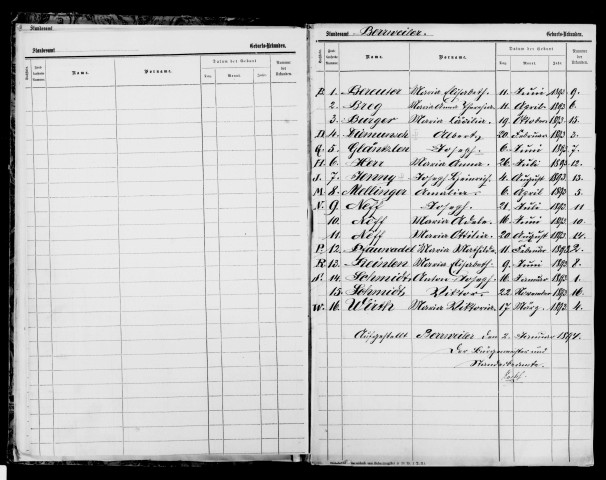 Standesamt
Geburts-Urkunden.
Name.
Vorname.
Datum der Geburt
Tag.
Monat.
Jahr.
Nummer der Urkunden.
Standesamt Bernweiler.
Geburts-Urkunden.
Name.
Vorname.
Datum der Geburt
Tag.
Monat.
Jahr.
Nummer der Urkunden.
B. 1. Maria Elisabeth. 11. Juni 1893 9.
2. Maria Anna 11. April 1893 6.
3. Burger Maria Cäcilia 19. Oktober 1893 15.
D. 4. Albert 20. Februar 1893 3.
G. 5. Joseph. 6. Juni 1893 7.
H. 6. Herr Maria Anna. 26. Juli 1893 12.
J. 7. Jenny Joseph Heinrich. 4. August 1893 13.
M. 8. Mellinger Amalia. 6. April 1893 5.
N. 9. Neff Joseph. 21. Juli 1893 11.
10. Neff Maria Adele. 16. Juni 1893 10.
11. Neff Maria Ottilia. 20. August 1893 14.
P. 12. Maria Mathilda. 11. Februar 1893 2.
R. 13. Maria Elisabeth. 9. Juni 1893 8.
S. 14. Schmidt Anton Joseph. 16. Januar 1893 1.
15. Schmidt Viktor. 22. November 1893 16.
W. 16. Wirth Maria Viktoria. 17. März 1893 4.
Aufgestellt Bernweiler den 2. Januar 1894.
Der Bürgermeister und
Standesbeamte.